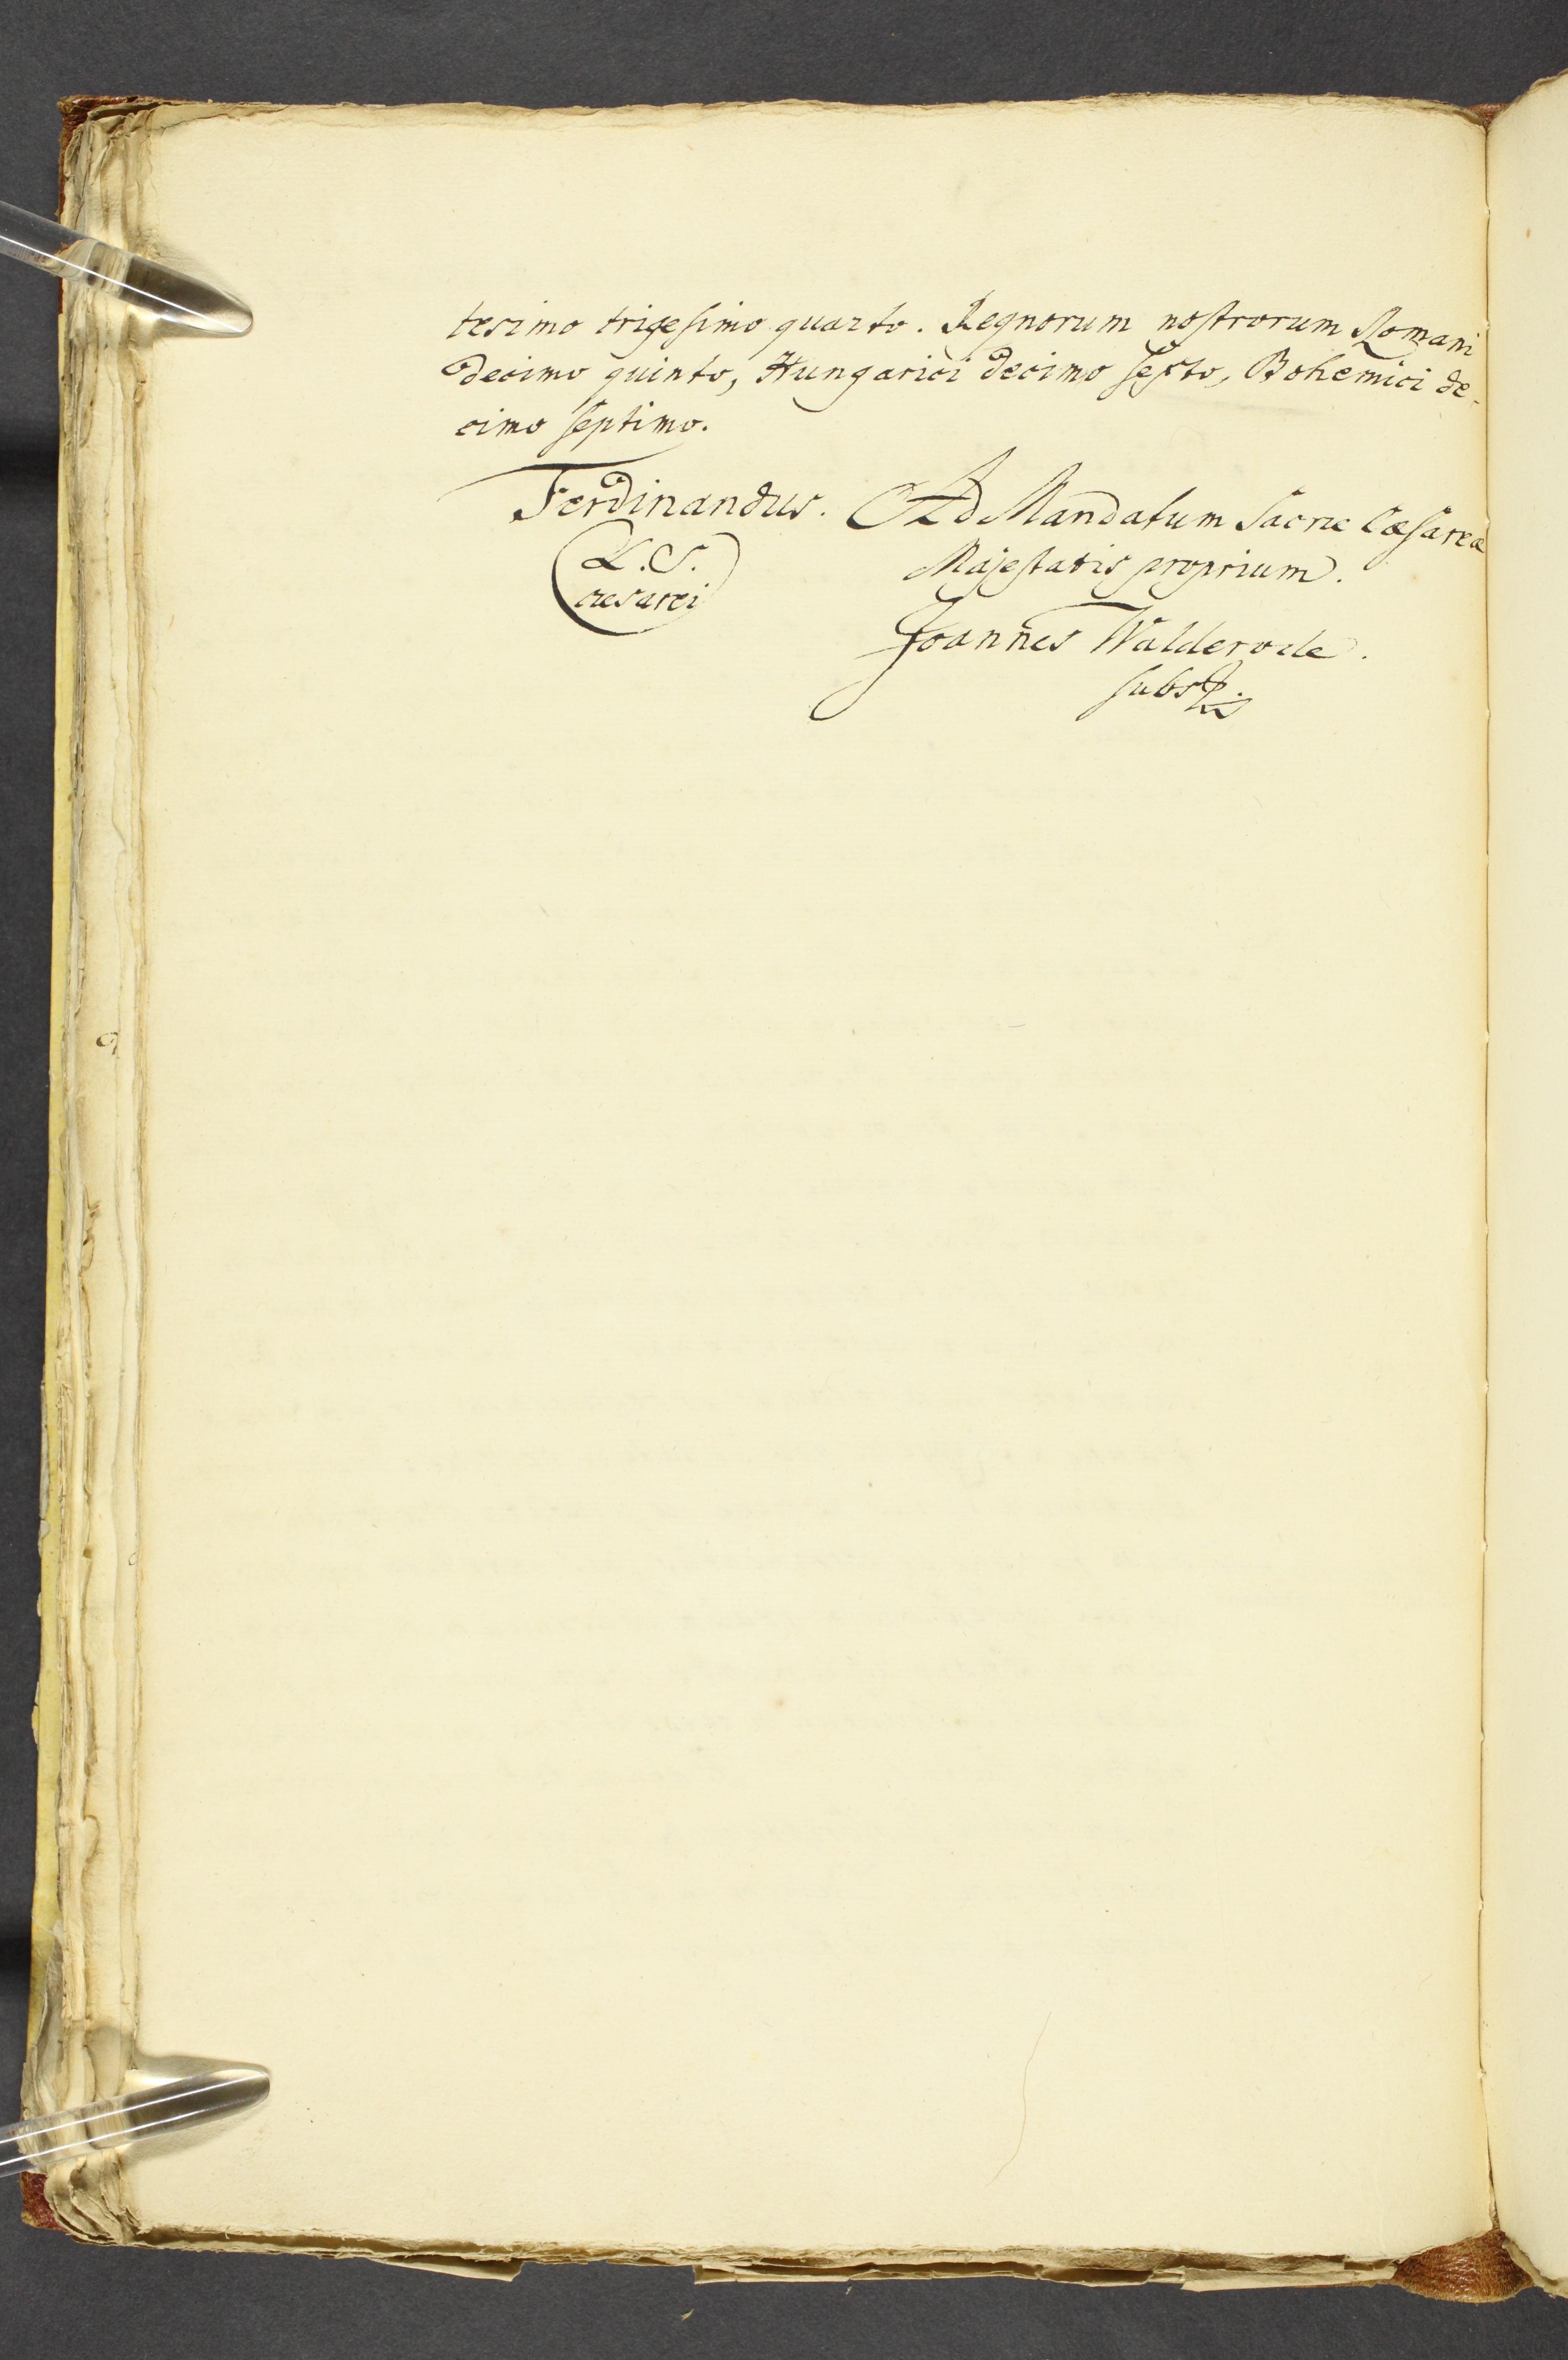 tesimo trigesimo quarto. Regnorum nostrorum Romani
decimo quinto, Hungarici decimo sexto, Bohemici de-
cimo septimo.
Ferdinandus.
L.S.
cæsarei
Ad Mandatum Sacræ Cæsareæ
Majestatis proprium.
Joannes Walderode.
subst